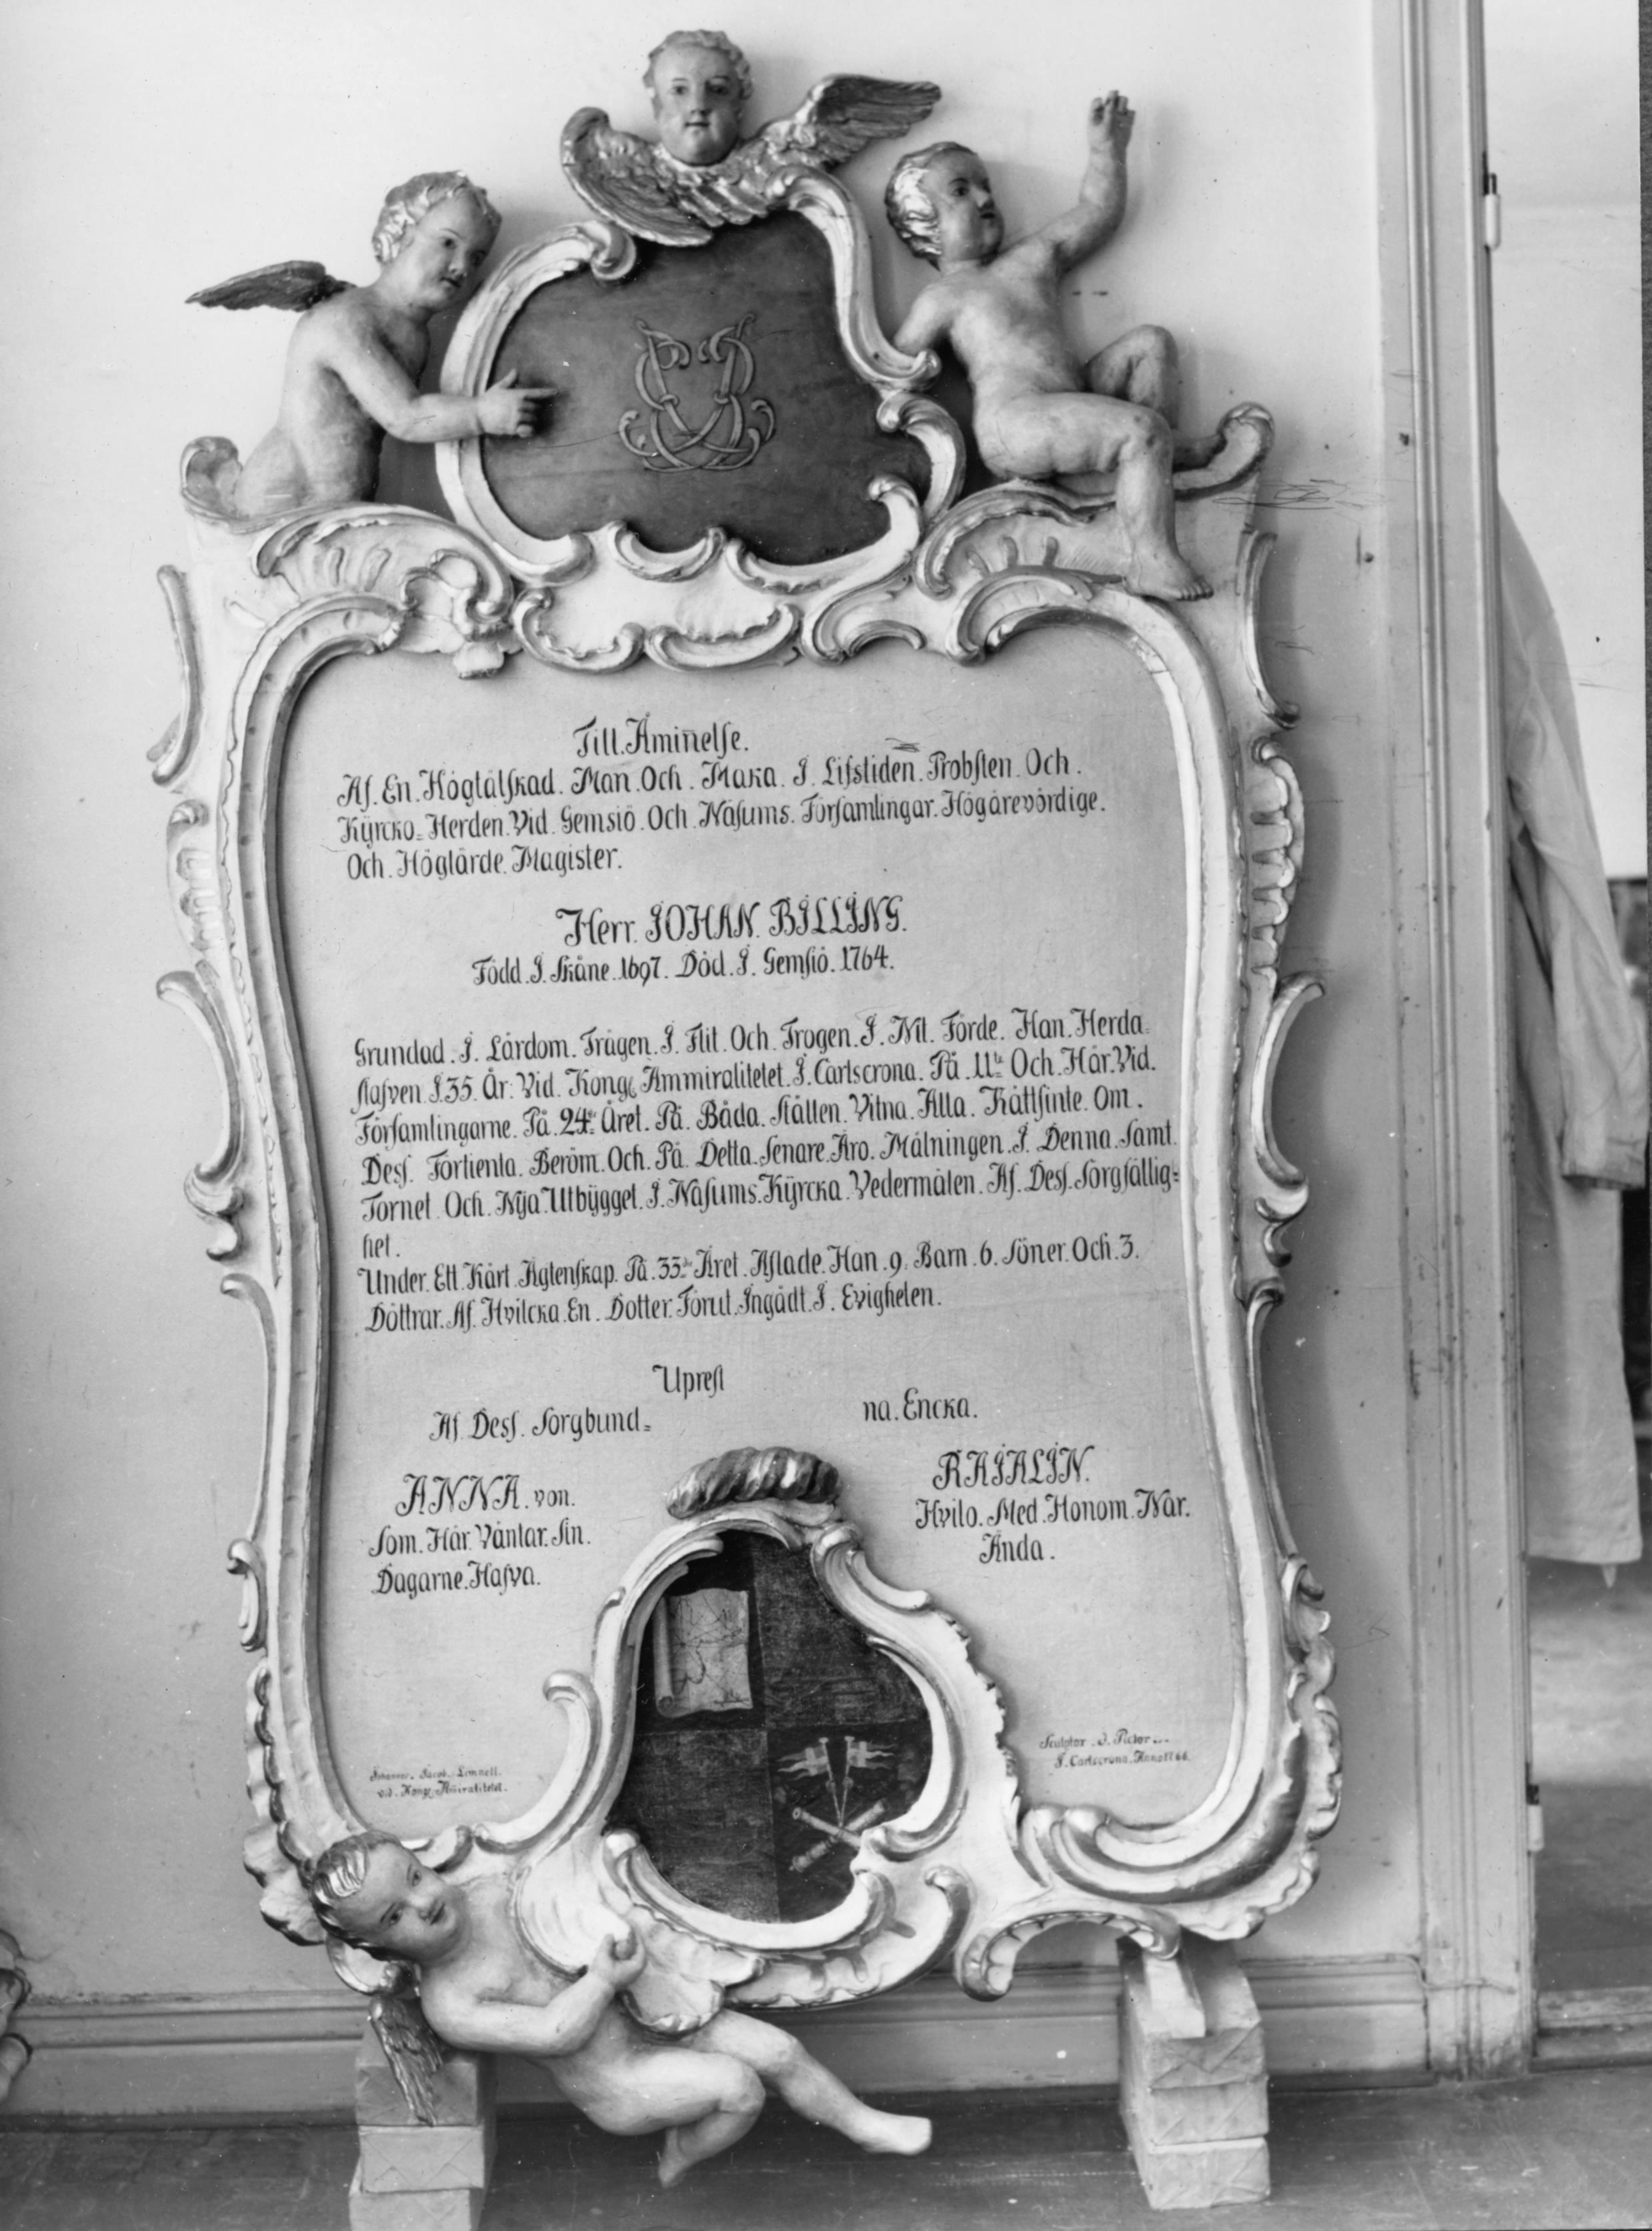 Till. Åmin̄else.
Af. En. Högtälskad. Man. Och. Maka. I. Lifstiden. Probsten. Och.
Kÿrcko= Herden. Vid. Gemsiö. Och. Näsums. Församlingar. Högärevördige.
Och. Höglärde. Magister.
Herr. IOHAN. BILLING.
Född. I. Skåne. 1697. Död. I. Gemsiö. 1764.
Grundad. I. Lärdom. Trägen. I. Flit. Och. Trogen. I. Nit. Förde. Han. Herda=
stafven. I. 35. År. Vid. Kongl. Ammiralitetet. I. Carlscrona. På. 11te Och. Här. Vid.
Församlingarne. På. 24de Året. På. Båda. Ställen. Vitna. Alla. Rättsinte. Om.
Dess. Förtienta. Beröm. Och. På. Detta. Senare. Äro. Målningen. I. Denna. Samt.
Tornet. Och. Nÿa. Utbÿgget. I. Näsums. Kÿrcka. Vedermälen. Af. Dess. Sorgfällig=
het.
Under. Ett. Kärt. Ägtenskap. På. 33de Året. Aflade. Han. 9. Barn. 6. Söner. Och. 3.
Döttrar. Af. Hvilcka. En. Dotter. Förut. Ingådt. I. Evigheten.
Uprest
Af. Dess. Sorgbund= na. Encka.
ANNA. von. RAIALIN.
Som. Här. Väntar. Sin. Hvilo. Med. Honom. När.
Dagarne. Hafva. Ända.
Johannes. Jacob. Limnell. Sculptor. I. Pictor
vid. Kongl. Am̄iralitetet. I. Carlscrona. Anno 1766.